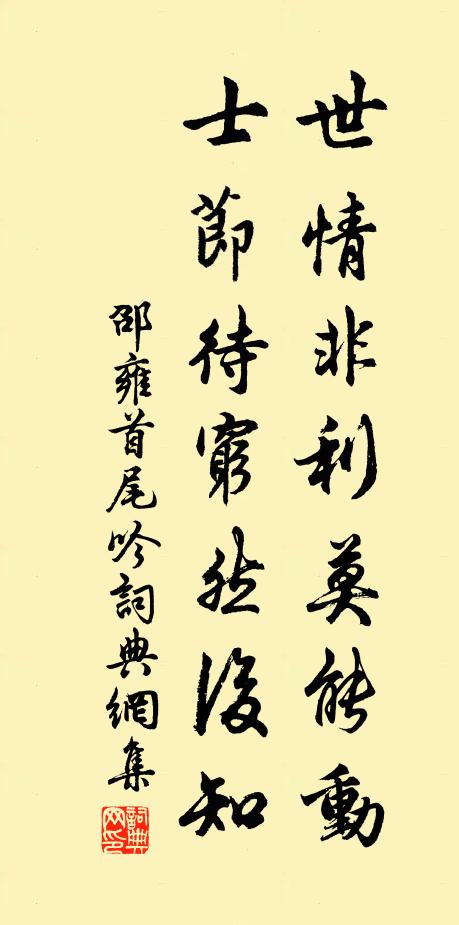 世情非利莫能動
士節待窮然後知
邵雍首尾吟詞典網集
詞典網印